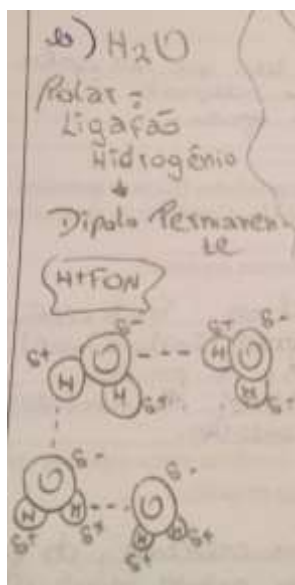 b) H₂O
Polar =
Ligação
Hidrogênio
↓
Dipolo Permanen-
te
H+FON
δ-
δ+ H O --- δ+ H O δ-
H δ+ H δ+
O δ- O δ-
H H --- H H
δ+ δ+ δ+ δ+